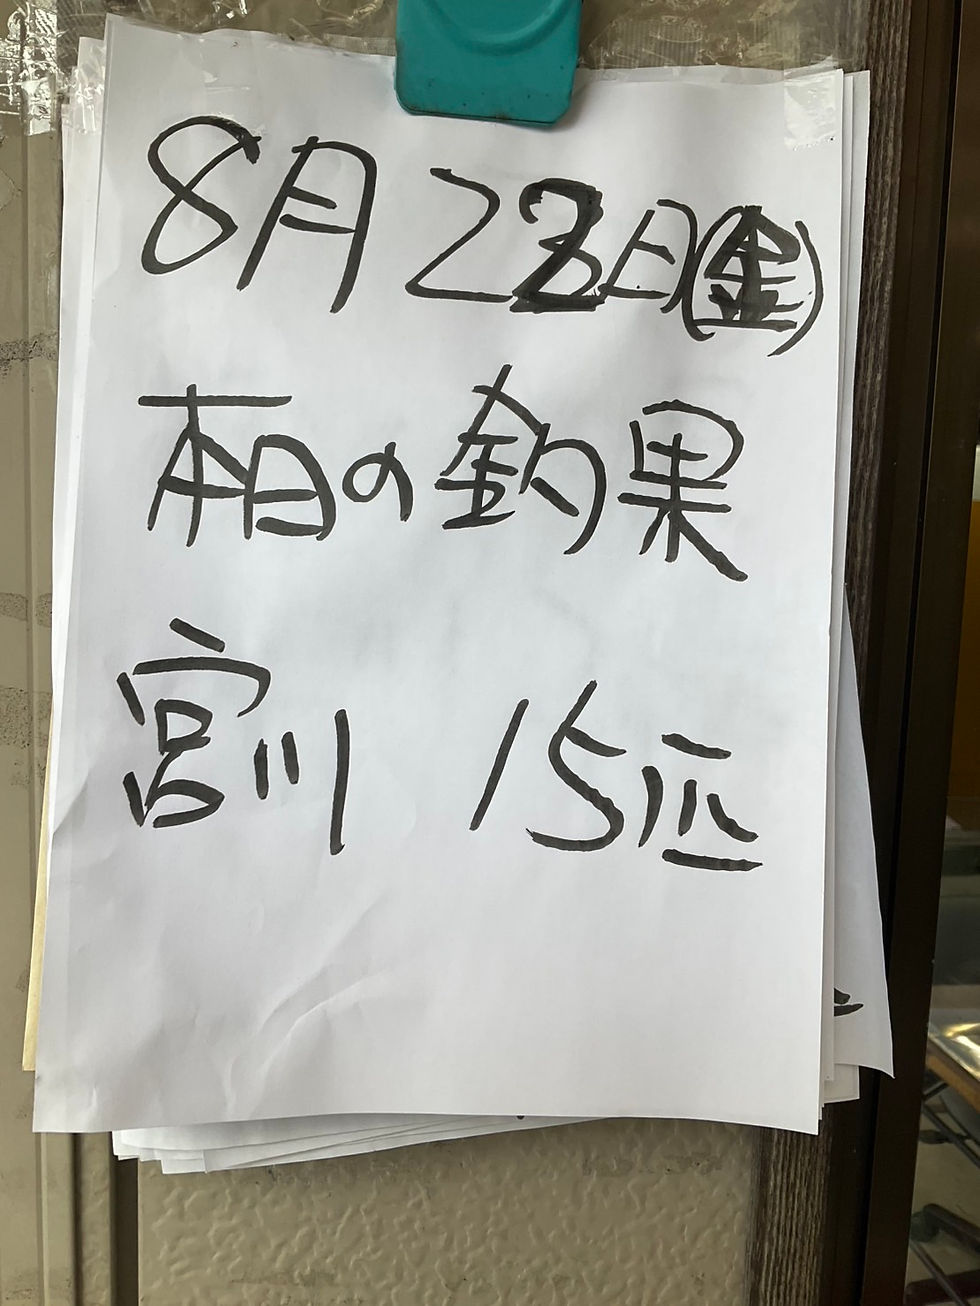 8月22日(金)
本日の釣果
宮川 15匹